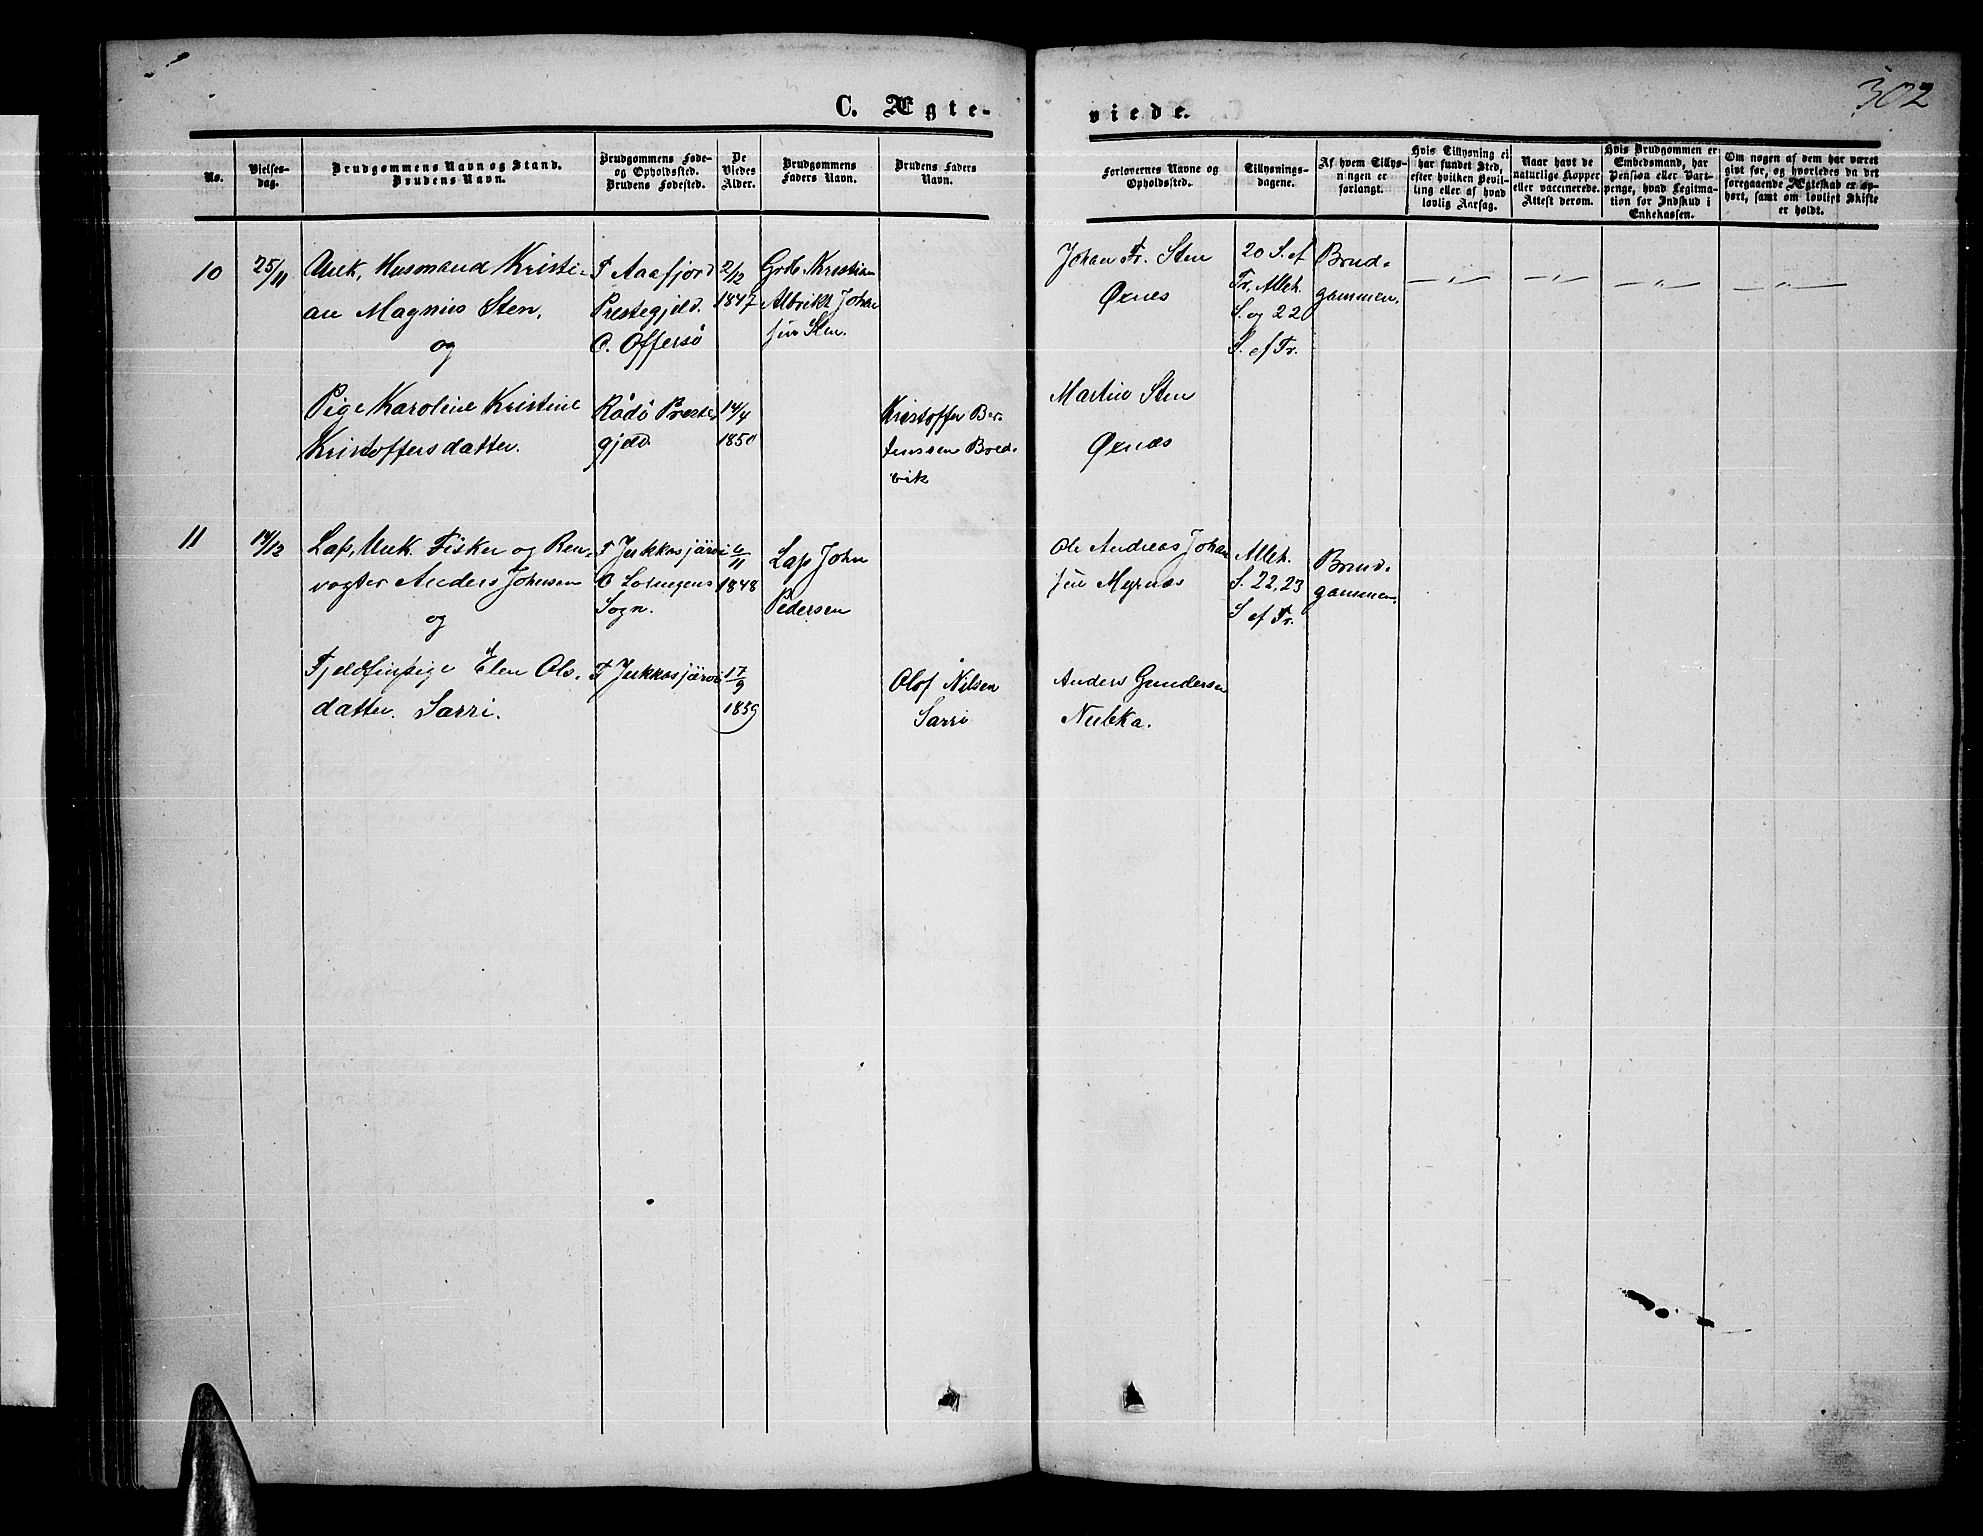 302
C. Ægte-
viede.
No.
Vielses-
dag.
Brudgommens Navn og Stand.
Brudens Navn.
Brudgommens Føde-
og Opholdssted.
Brudens Fødested.
De
Viedes
Alder.
Brudgommens
Faders Navn.
Brudens Faders
Navn.
Forlovernes Navne og
Opholdssted.
Tillysnings-
dagene.
Af hvem Tillys-
ningen er
forlangt.
Hvis Tillysning ei
har fundet Sted,
efter hvilken Bevil-
ling eller af hvad
lovlig Aarsag.
Naar havt de
naturlige Kopper
eller vaccinerede.
Attest derom.
Hvis Brudgommen er
Embedsmand, har
Pension eller Vart-
penge, hvad Legitima-
tion for Indskud i
Enkekassen.
Om nogen af dem har været
gift før, og hvorledes da det
foregaaende Ægteskab er op-
hørt, samt om lovligt Skifte
er holdt.
10
25/11
Unk. Husmand Kristi-
an Magnus Sten,
og
Pige Karoline Kristine
Kristoffersdatter.
F Aafjord
Prestegjeld.
O. Offersø
Rødø Preste
gjeld
2/12
1847
14/4
1850
Grdb. Kristian
Albrikt Johan
sen Sten.
Kristoffer Ber-
tenssen Bred-
vik
Johan Fr. Sten
Øxnes
Martin Sten
Øxnæs
20 S. ef
Tr, Alleh.
S. og 22
S. ef Tr.
Brud-
gommen.
11
14/12
Lap, Unk. Fisker og Ren-
vogter Anders Johnsen
og
Fjeldfinpige Elen Ols-
datter. Sarri.
F Jukkasjärvi
O Lødingens
Sogn.
F Jukkasjärvi
6/11
1848
17/9
1859
Lap John
Pedersen
Olof Nilsen
Sarri
Ole Andreas Johan
sen Myrnæs
Anders Gundersen
Nubka.
Alleh.
S. 22, 23
S ef Tr.
Brud-
gommen.